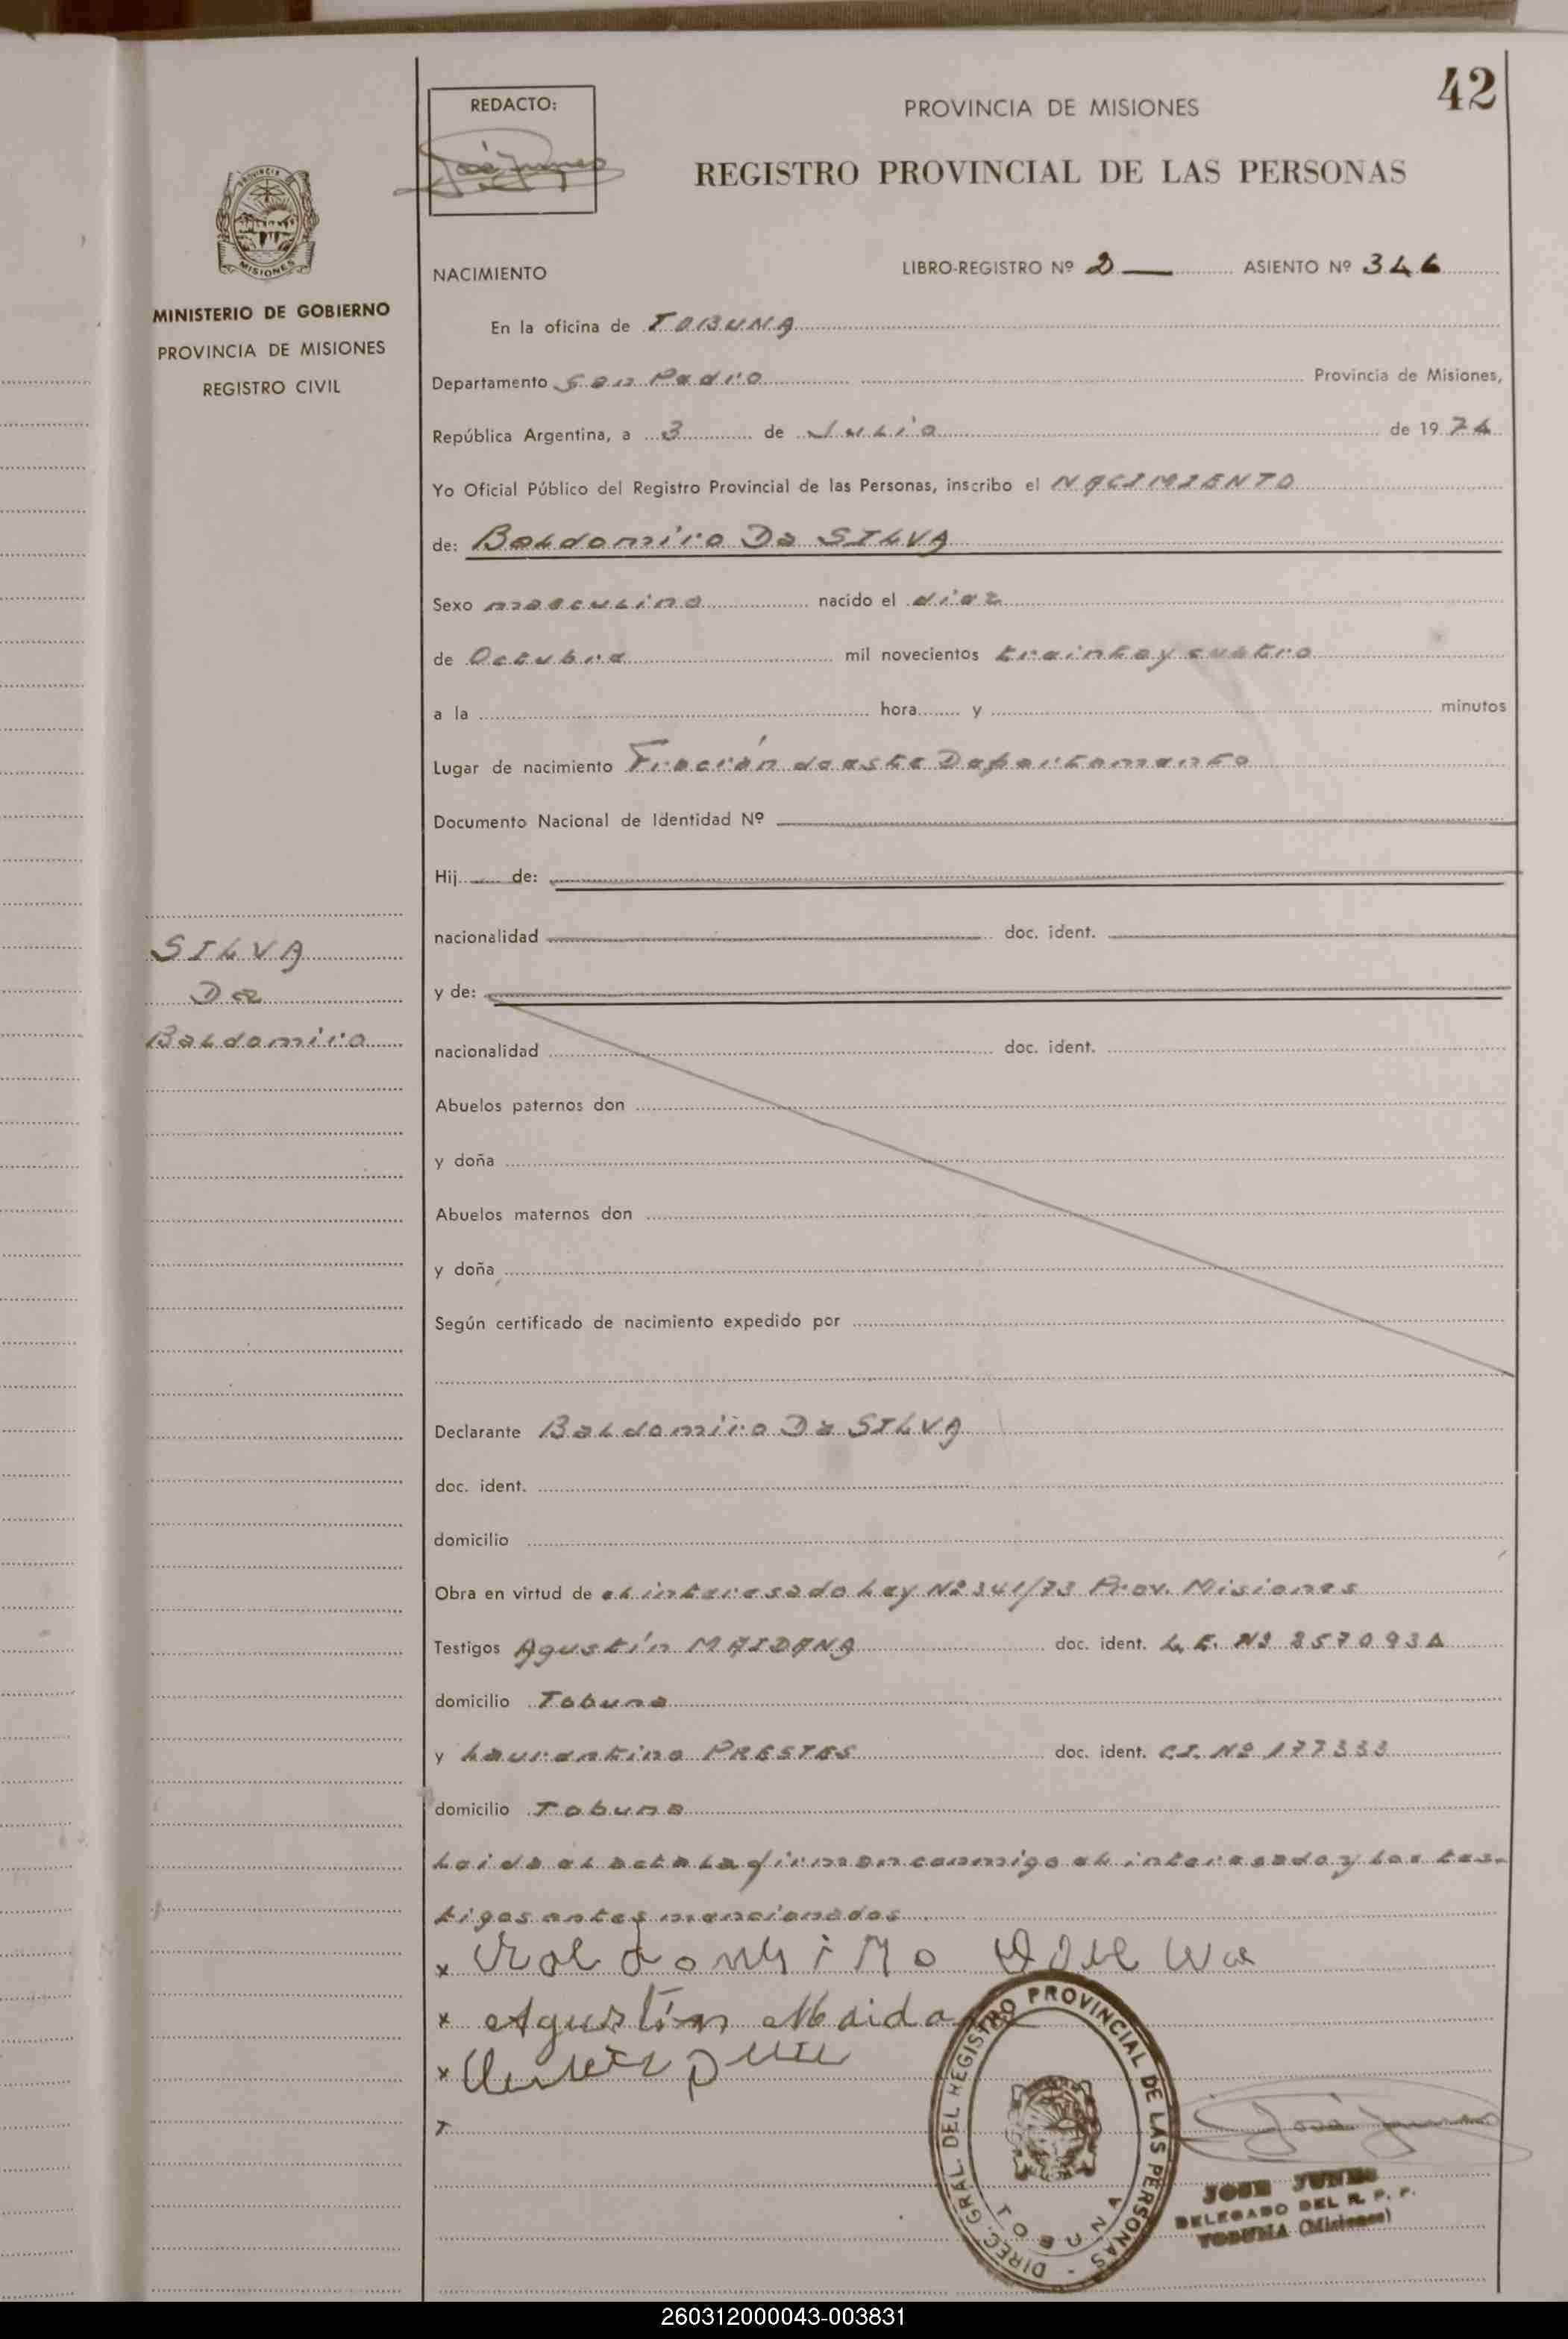 42
REDACTO:
PROVINCIA DE MISIONES
REGISTRO PROVINCIAL DE LAS PERSONAS
PROVINCIA DE
MISIONES
MINISTERIO DE GOBIERNO
PROVINCIA DE MISIONES
REGISTRO CIVIL
NACIMIENTO LIBRO-REGISTRO Nº 2 ASIENTO Nº 346
En la oficina de TOBUNA
Departamento San Pedro Provincia de Misiones,
República Argentina, a 3 de Julio de 1974
Yo Oficial Público del Registro Provincial de las Personas, inscribo el NACIMIENTO
de: Baldomiro Da SILVA
Sexo masculino nacido el diez
de Octubre mil novecientos treinta y cuatro
a la hora y minutos
Lugar de nacimiento Fracrán de este Departamento
Documento Nacional de Identidad Nº
Hij de:
nacionalidad doc. ident.
SILVA
Da
Baldomiro
y de:
nacionalidad doc. ident.
Abuelos paternos don
y doña
Abuelos maternos don
y doña
Según certificado de nacimiento expedido por
Declarante Baldomiro Da SILVA
doc. ident.
domicilio
Obra en virtud de el interesado Ley Nº 341/73 Prov. Misiones
Testigos Agustín MAIDANA doc. ident. L.E. Nº
domicilio Tobuna
y Laurentino PRESTES doc. ident. C.I. Nº 177333
domicilio Tobuna
Leida el acta la firman conmigo el interesado y los tes-
tigos antes mencionados
x
x Agustín Maida
x
DIREC. GRAL. DEL REGISTRO PROVINCIAL DE LAS PERSONAS -
TOBUNA
José Junes
JOSE JUNES
DELEGADO DEL R. P. P.
TOBUNA (Misiones)
260312000043-003831